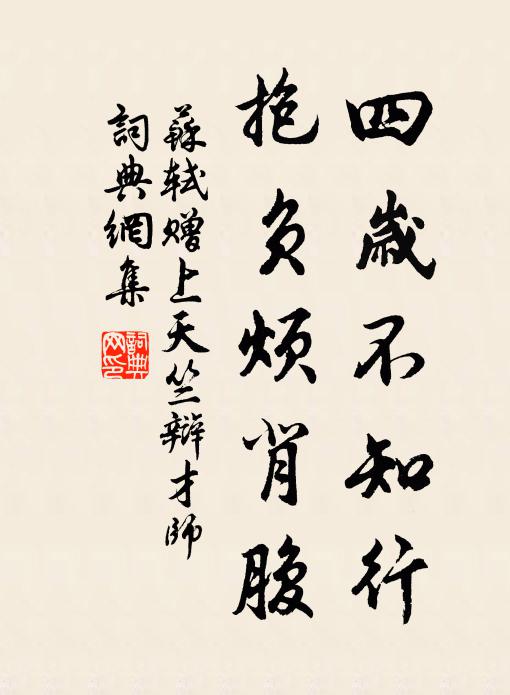 四歲不知行
抱負煩背腹
蘇軾贈上天竺辯才師
詞典網集
詞典
网印